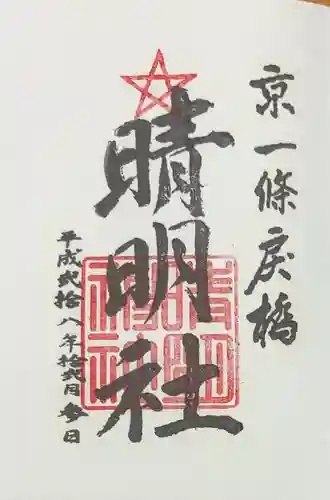 京一條戻橋
晴明社
平成弐拾八年拾弐月参日
晴明神社